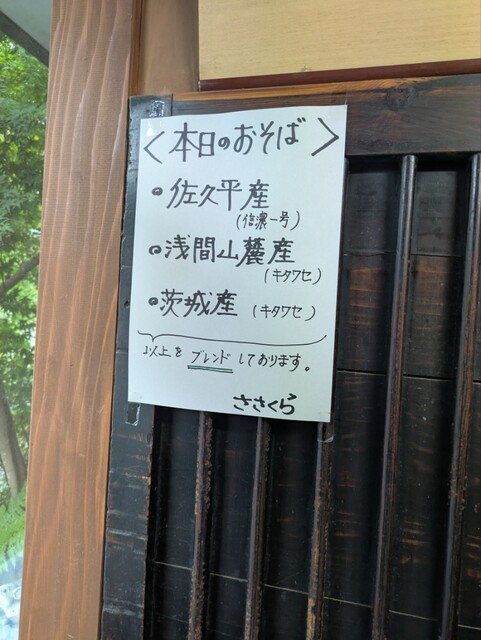 〈本日のおそば〉
• 佐久平産
(信濃一号)
• 浅間山麓産
(キタワセ)
• 茨城産 (キタワセ)
以上をブレンドしております。
ささくら